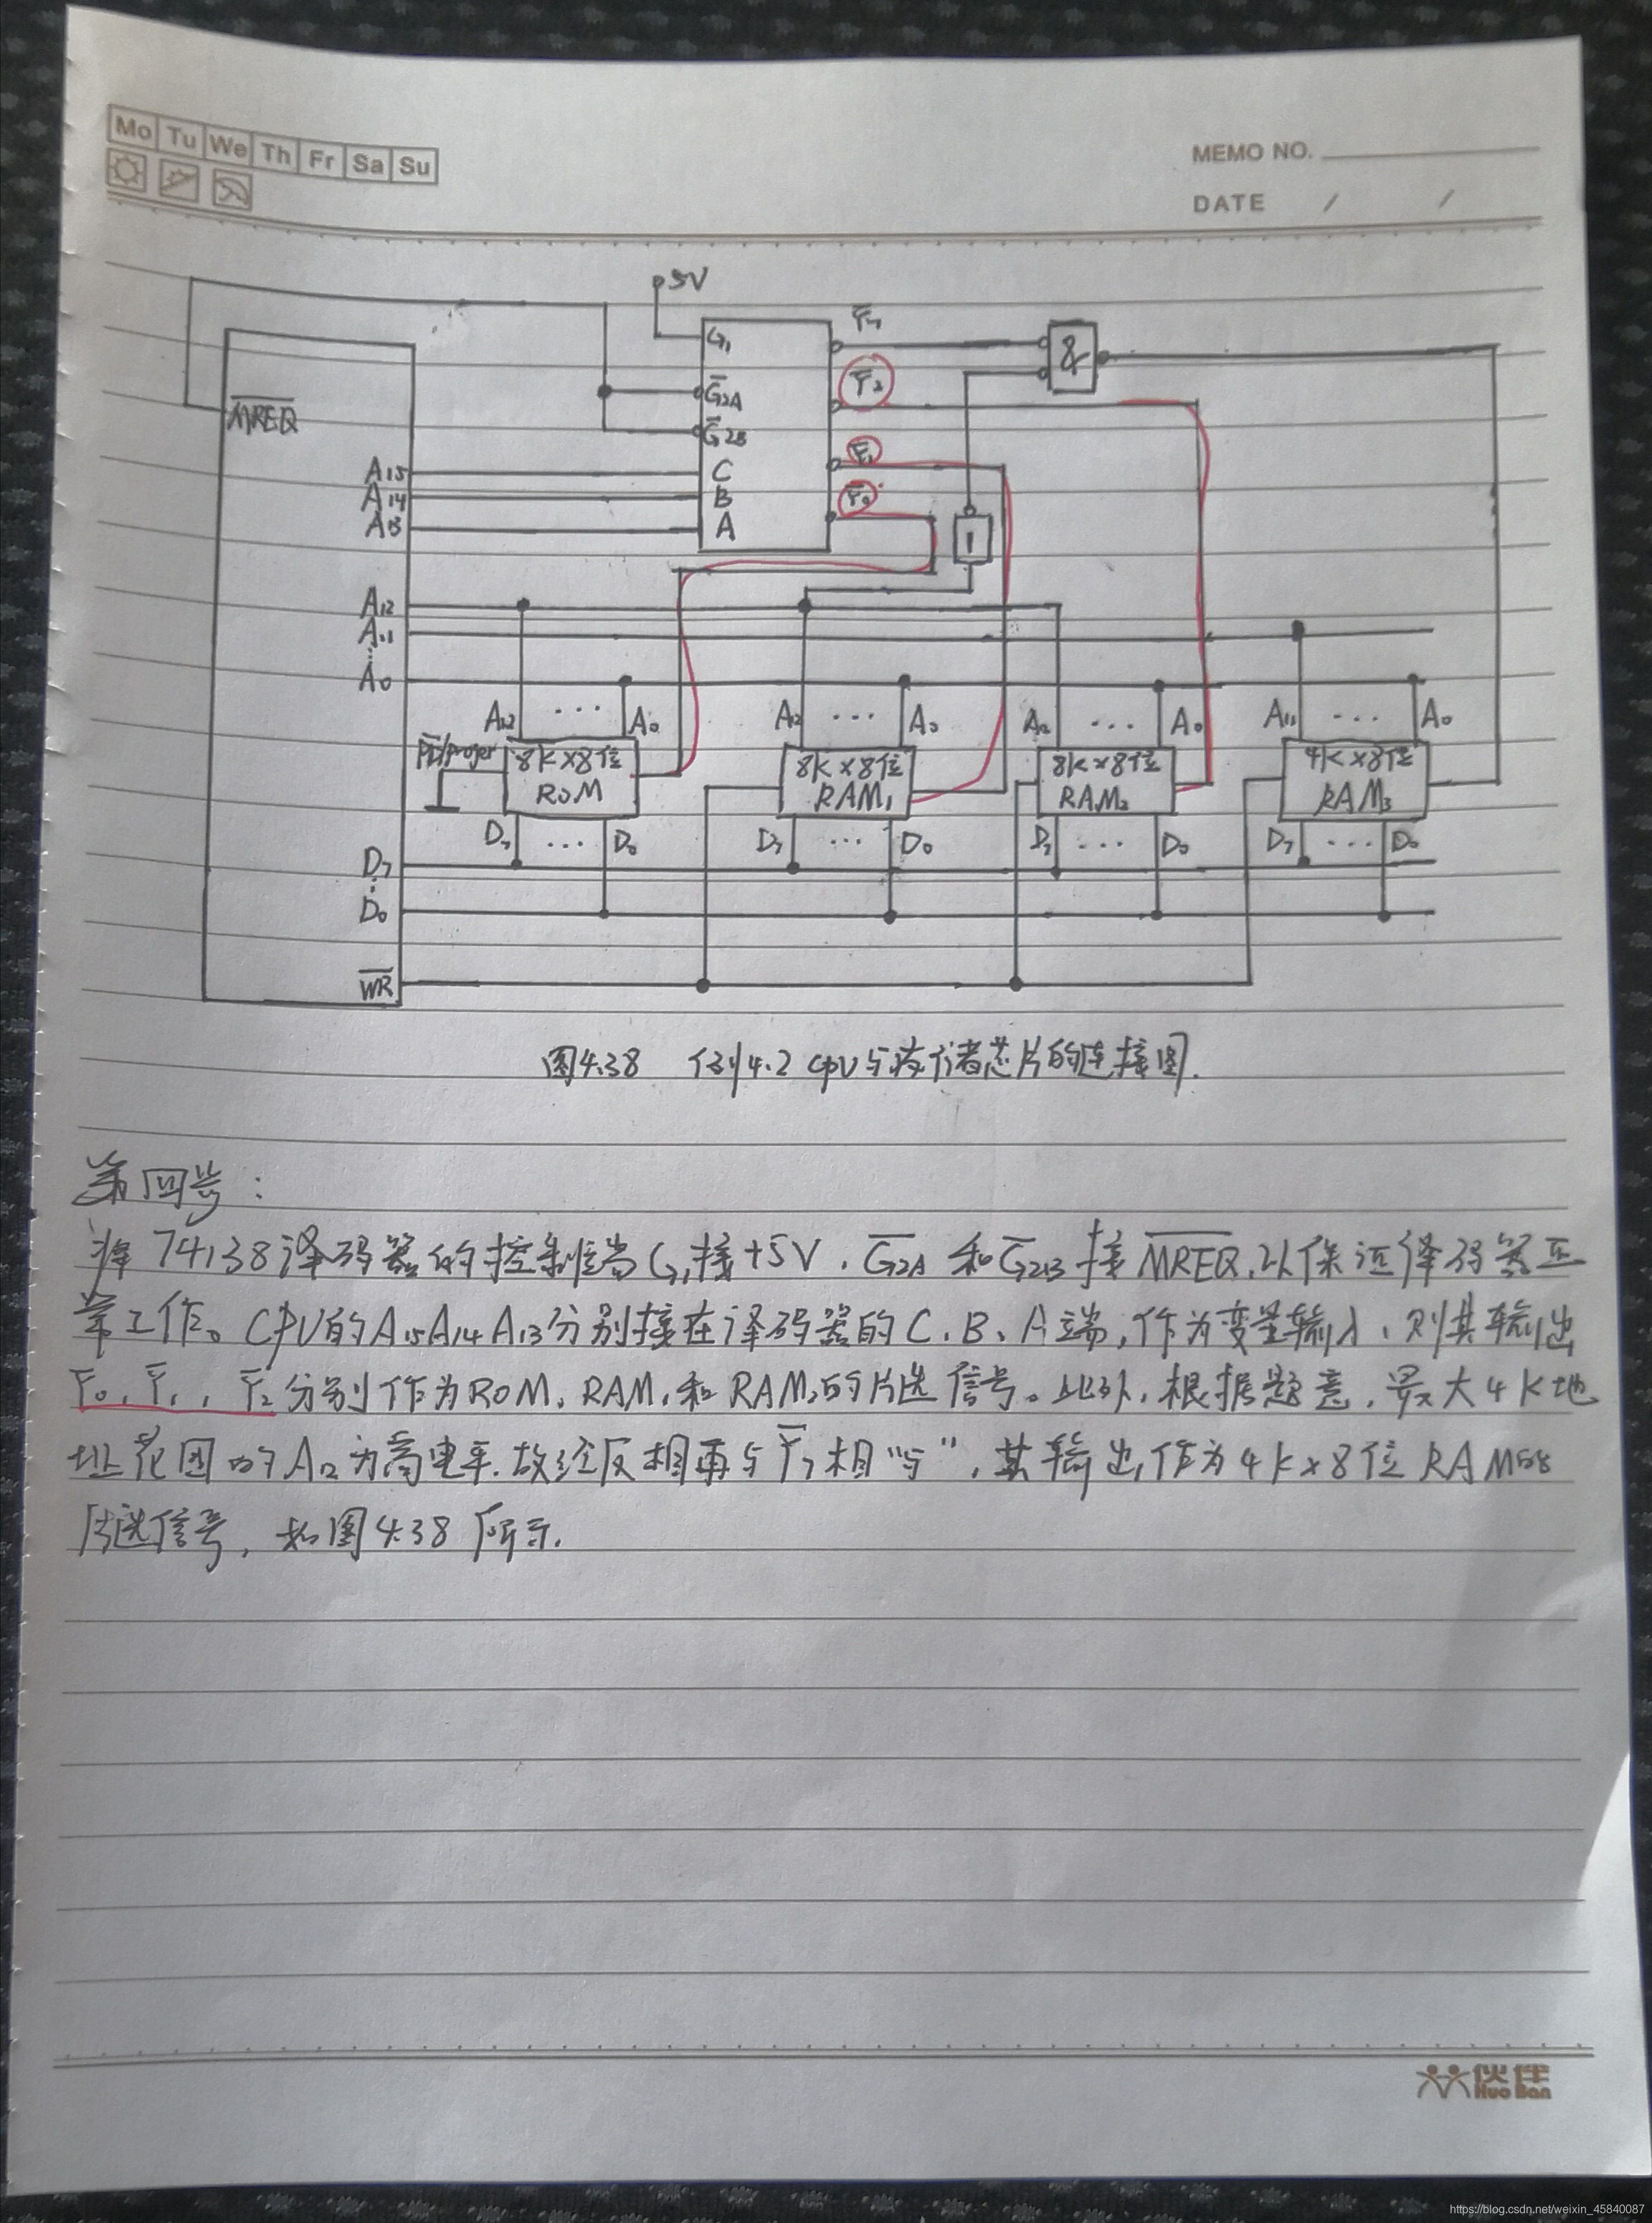 Mo Tu We Th Fr Sa Su
MEMO NO.
DATE / /
5V
G₁
Y̅₇
&
G̅2A
Y̅₂
M̅R̅E̅Q̅
G̅2B
A15
C
Y̅₁
A14
B
Y̅₀
A13
A
1
A12
A11
⋮
A0
A12 ··· A0
A12 ··· A0
A12 ··· A0
A11 ··· A0
8K×8位
ROM
8K×8位
RAM₁
8K×8位
RAM₂
4K×8位
RAM₃
D7 ··· D0
D7 ··· D0
D7 ··· D0
D7 ··· D0
D7
⋮
D0
W̅R̅
图4.38 例4.2 CPU与存储芯片的连接图.
第四步：
将74138译码器的控制端G₁接+5V，G̅2A和G̅2B接M̅R̅E̅Q̅,以保证译码器正
常工作。CPU的A15A14A13分别接在译码器的C、B、A端,作为变量输入,则其输出
Y̅₀、Y̅₁、Y̅₂分别作为ROM、RAM₁和RAM₂的片选信号。此外,根据题意,最大4K地
址范围的A12为高电平,故经反相再与Y̅₇相“与”,其输出作为4K×8位RAM的
片选信号,如图4.38所示.
伙伴
Huo Ban
https://blog.csdn.net/weixin_45840087